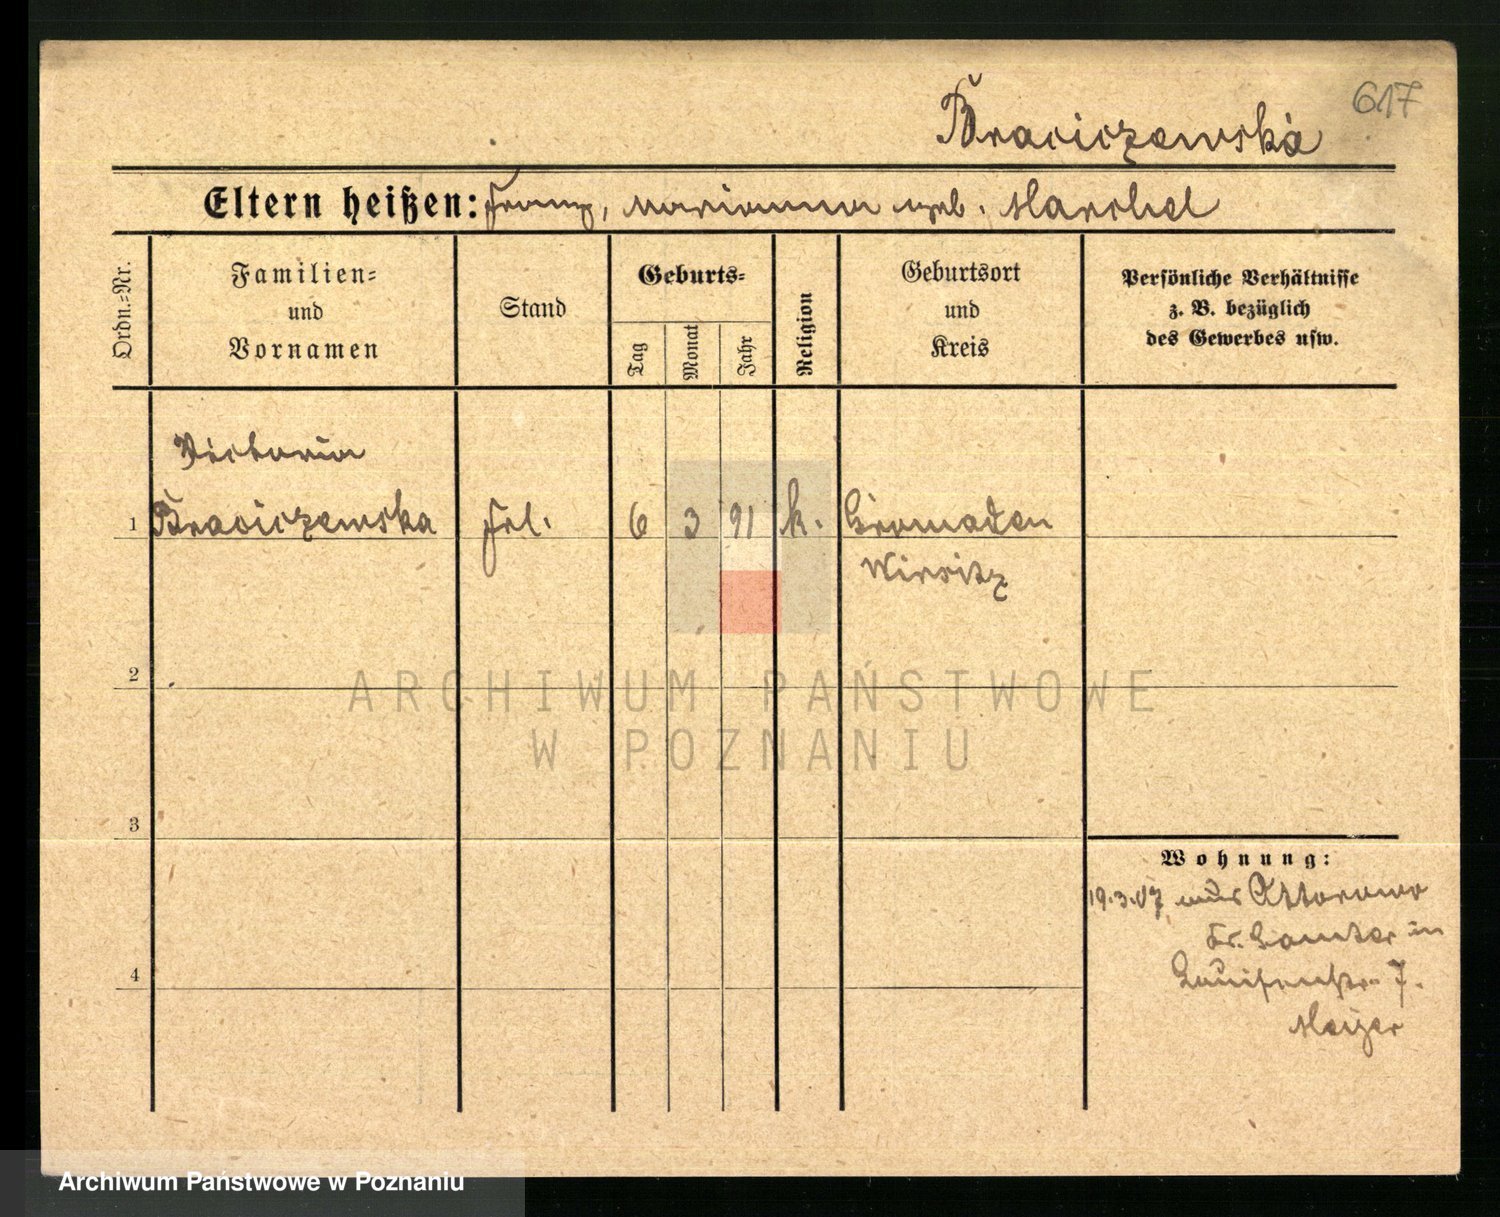 617
Braciczewska
Eltern heißen: Franz, Marianna geb. Marchel
Ordn.-Nr.
Familien-
und
Vornamen
Stand
Geburts-
Tag
Monat
Jahr
Religion
Geburtsort
und
Kreis
Persönliche Verhältnisse
z. B. bezüglich
des Gewerbes usw.
Victoria
1 Braciczewska Frl. 6 3 91 k. Gromaden
Wirsitz
2
ARCHIWUM PAŃSTWOWE
W POZNANIU
3
Wohnung:
19.3.07 aus Ottorowo
Kr. Samter in
4
Louisenstr. 7.
Archiwum Państwowe w Poznaniu